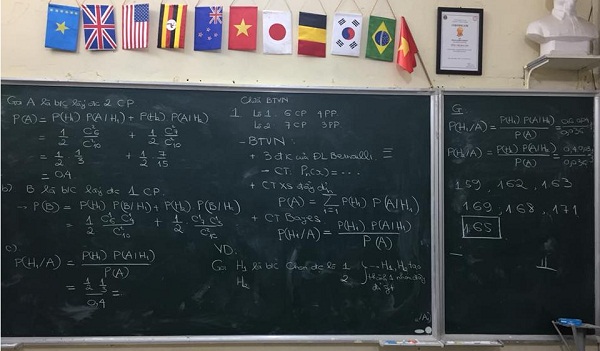 Gọi A là b/c lấy đc 2 CP
P(A) = P(H₁) P(A/H₁) + P(H₂) P(A/H₂)
= 1/2 C²₆/C²₁₀ + 1/2 C²₇/C²₁₀
= 1/2 1/3 + 1/2 7/15
= 0,4
b) B là b/c lấy đc 1 CP.
→ P(B) = P(H₁) P(B/H₁) + P(H₂) P(B/H₂)
= 1/2 C¹₆ C¹₄/C²₁₀ + 1/2 C¹₇ C¹₃/C²₁₀
c)
P(H₁/A) = P(H₁) P(A/H₁)/P(A)
= 1/2 1/3/0,4 =
Chữa BTVN
1. Lô 1: 6CP 4PP.
Lô 2: 7CP 3PP.
- BTVN:
+ 3 đk của ĐL Bernoulli.
→ CT: Pₙ(x) = ...
+ CT XS đầy đủ
P(A) = Σⁿᵢ₌₁ P(Hᵢ) P(A/Hᵢ)
+ CT Bayes
P(Hᵢ/A) = P(Hᵢ) P(A/Hᵢ)/P(A)
VD:
Gọi H₁ là b/c chọn đc lô 1 → H₁, H₂ tạo
H₂ 2 thành 1 nhóm đầy đủ
G
P(H₁/A) = P(H₁) P(A/H₁)/P(A) =
P(H₂/A) = P(H₂) P(A/H₂)/P(A) =
159, 162, 163
169, 168, 171
165